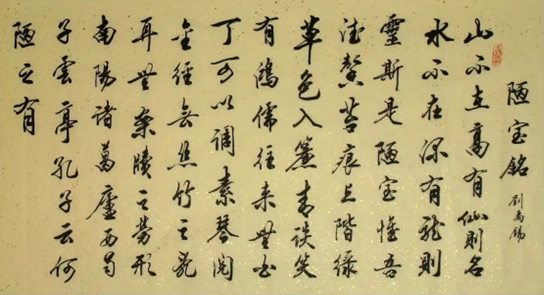 陋室銘 劉禹錫
山不在高有仙則名
水不在深有龍則
靈斯是陋室惟吾
德馨苔痕上階緑
草色入簾青談笑
有鴻儒往来無白
丁可以调素琴閲
金經無絲竹之亂
耳無案牘之勞形
南陽諸葛廬西蜀
子雲亭孔子云何
陋之有